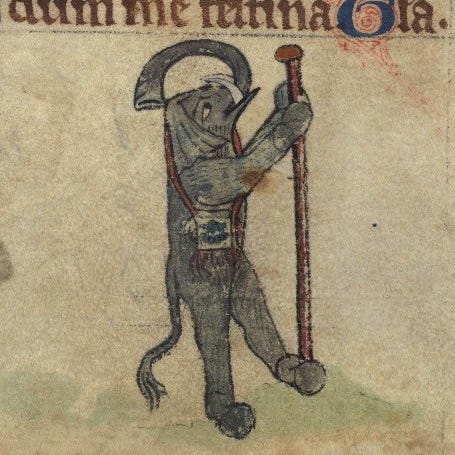 dum me festina Gla.